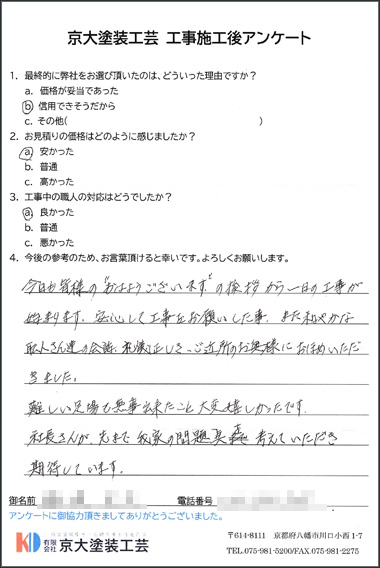 京大塗装工芸 工事施工後アンケート
1. 最終的に弊社をお選び頂いたのは、どういった理由ですか？
a. 価格が妥当であった
b. 信用できそうだから
c. その他( )
2. お見積りの価格はどのように感じましたか？
a. 安かった
b. 普通
c. 高かった
3. 工事中の職人の対応はどうでしたか？
a. 良かった
b. 普通
c. 悪かった
4. 今後の参考のため、お言葉頂けると幸いです。よろしくお願いします。
今日も皆様の"おはようございます"の挨拶から一日の工事が
始まります。安心して工事をお願いした事、また和やかな
職人さん達の会話、礼儀正しさ、ご近所のお奥様にお ほめいただ
きました。
難しい足場も無事出来たこと大変嬉しかったです。
社長さんが、先まで我家の問題 考えていただき
期待しています。
御名前 電話番号
アンケートに御協力頂きましてありがとうございました。
KD 有限会社 京大塗装工芸
〒614-8111 京都府八幡市川口小西 1-7
TEL.075-981-5200/FAX.075-981-2275